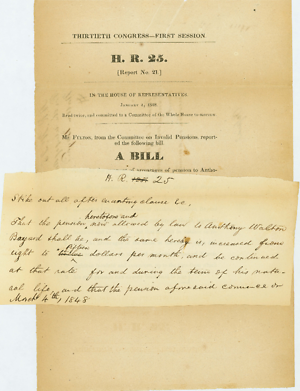 THIRTIETH CONGRESS—FIRST SESSION
H. R. 25.
[Report No. 21.]
IN THE HOUSE OF REPRESENTATIVES
January 4, 1848
Read twice, and committed to a Committee of the Whole House to-morrow
Mr. Fulton, from the Committee on Invalid Pensions, report-
ed the following bill:
A BILL
increase of pension to Antho-
H. R. 25
Strike out all after enacting clause &c.
heretofore and
That the pension now allowed by law to Anthony Walton
Bayard shall be, and the same hereby is, increased from
fifteen
eight to dollars per month, and be continued
at that rate for and during the term of his natu-
ral life, and that the pension aforesaid commence on
March 4th, 1848